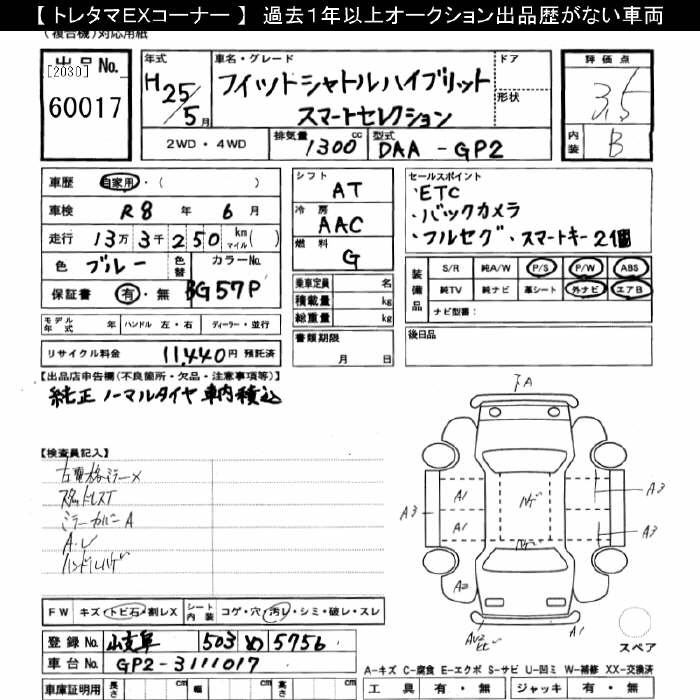 【 トレタマEXコーナー 】 過去1年以上オークション出品歴がない車両
(複合機)対応用紙
出品No.
[2030]
60017
年式
H25/5月
車名・グレード
フィットシャトルハイブリット
スマートセレクション
ドア
形状
評価点
3.5
内装
B
2WD・4WD
排気量
1300 cc
型式
DAA-GP2
車歴 自家用・( )
車検 R8 年 6 月
走行 13万3千250 km マイル( )
色 ブルー 色替 カラーNo.
保証書 有・無 BG57P
シフト AT
冷房 AAC
燃料 G
乗車定員 名
積載量 kg
総重量 kg
書類期限
月 日
セールスポイント
・ETC
・バックカメラ
・フルセグ・スマートキー2個
装備品
S/R 純A/W P/S P/W ABS
純TV 純ナビ 革シート 外ナビ エアB
ナビ型番:
後日品
モデル年式 年 ハンドル 左・右 ディーラー・並行
リサイクル料金 11,440円 預託済
【出品店申告欄(不良箇所・欠品・注意事項等)】
純正ノーマルタイヤ車内積込
【検査員記入】
右電格ミラーメ
スタッドレスT
ミラーカバーA
ハンドルハゲ
下A
A1
ハゲ
A3
A3
A1
A3
ハゲ
A2
A1
スペア
FW キズ・トビ石・割レX シート内装 コゲ・穴・汚レ・シミ・破レ・スレ
登録No. 503 め 5756
車台No. GP2-3111017
車庫証明用 長さ cm 幅 cm 高さ cm
A-キズ C-腐食 E-エクボ S-サビ U-凹ミ W-補修 XX-交換済
工具 有・無 ジャッキ 有・無